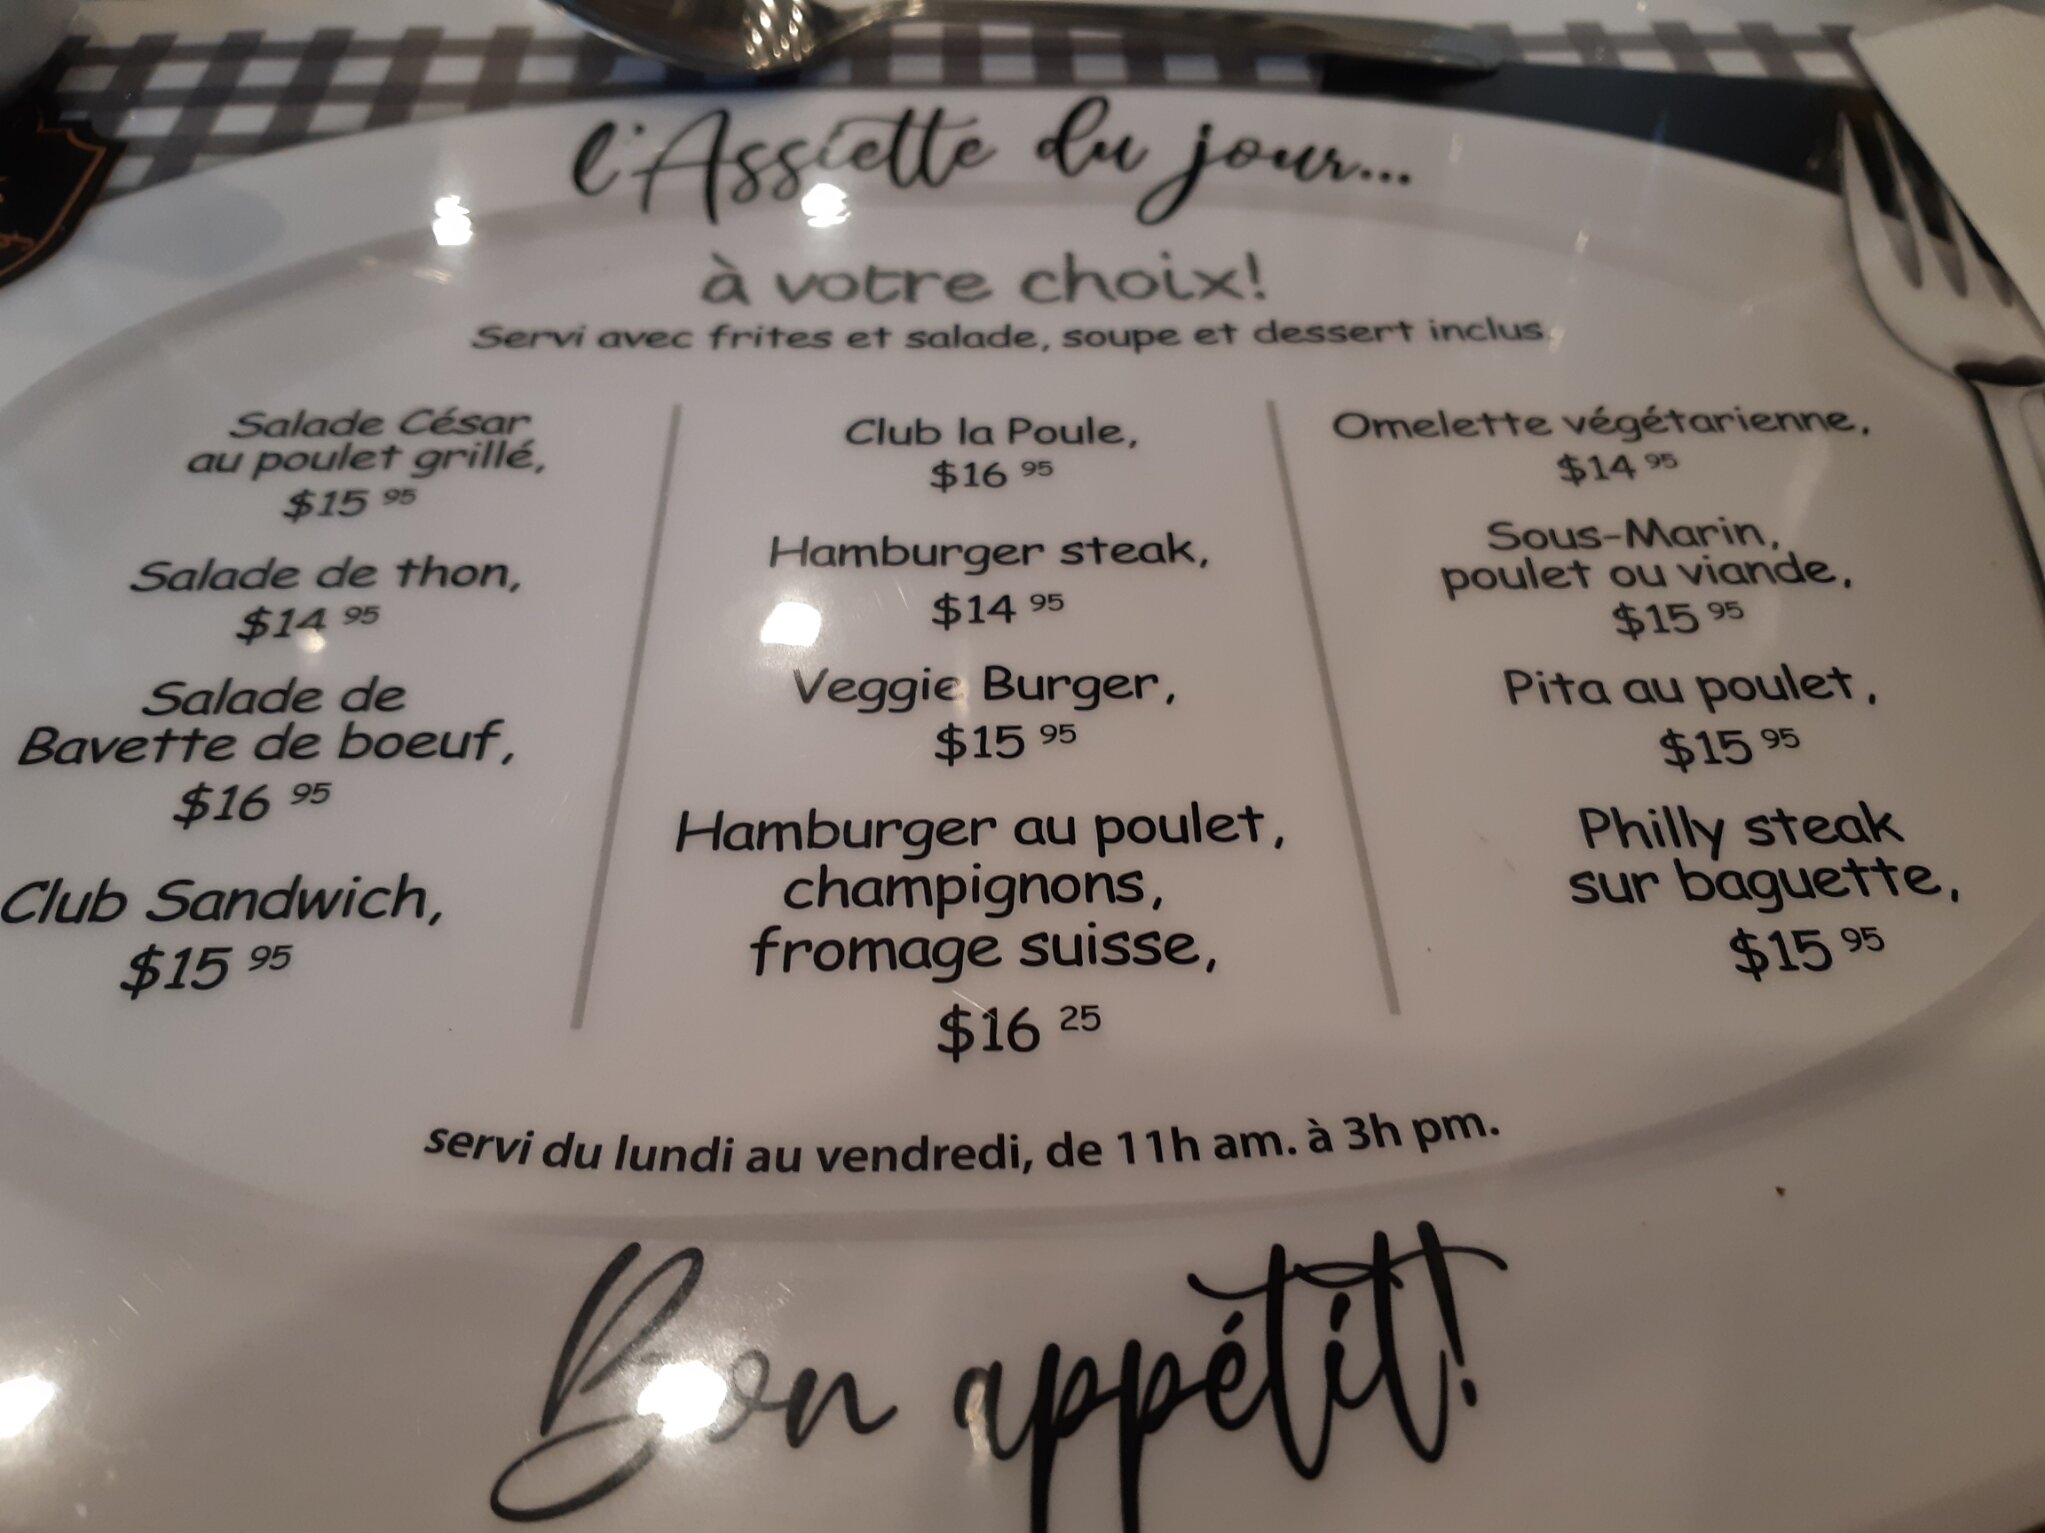 l'Assiette du jour...
à votre choix!
Servi avec frites et salade, soupe et dessert inclus.
Salade César
au poulet grillé,
$15 95
Salade de thon,
$14 95
Salade de
Bavette de boeuf,
$16 95
Club Sandwich,
$15 95
Club la Poule,
$16 95
Hamburger steak,
$14 95
Veggie Burger,
$15 95
Hamburger au poulet,
champignons,
fromage suisse,
$16 25
Omelette végétarienne,
$14 95
Sous-Marin,
poulet ou viande,
$15 95
Pita au poulet,
$15 95
Philly steak
sur baguette,
$15 95
servi du lundi au vendredi, de 11h am. à 3h pm.
Bon appétit!